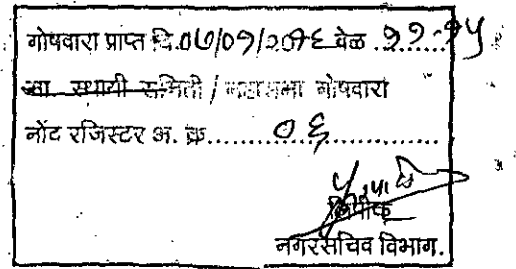 गोषवारा प्राप्त दि.०७/०१/२०१६ वेळ ..११-१५
मा. स्थायी समिती / महासभा गोषवारा
नोंद रजिस्टर अ. क्र......०६..........
लिपीक
नगरसचिव विभाग.